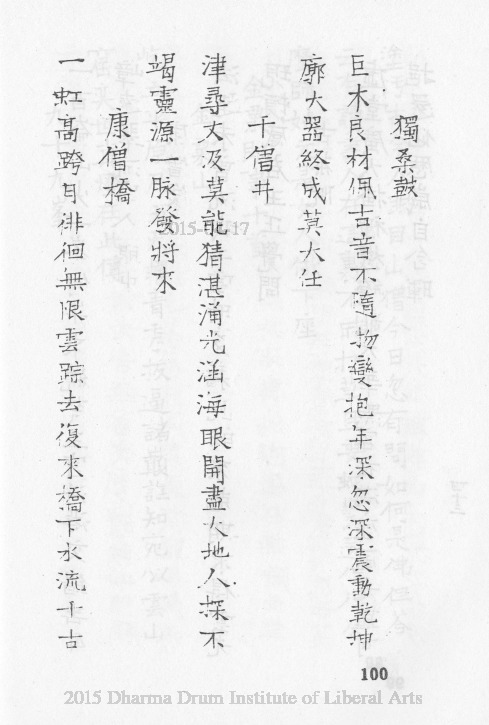 獨桑鼓
巨木良材佩古音不隨物變抱年深忽深震動乾坤
廓大器終成莫大任
千僧井
津尋丈汲莫能猜湛湧光涵海眼開盡大地人探不
竭靈源一脉發將來
康僧橋
一虹高跨日徘徊無限雲踪去復來橋下水流千古
100
2015 Dharma Drum Institute of Liberal Arts